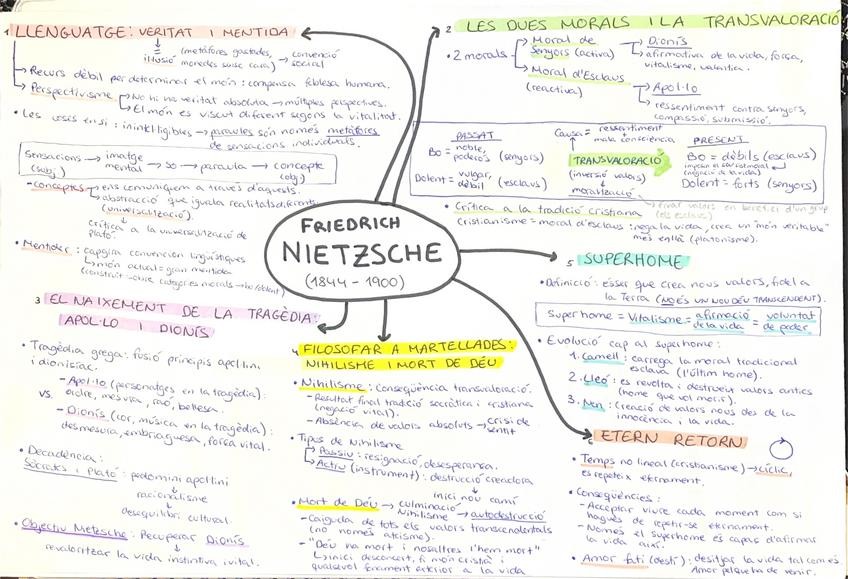 1 LLENGUATGE: VERITAT I MENTIDA
il·lusió (metàfores gastades, monedes sense cara) → convenció social
→ Recurs dèbil per determinar el món: compensa feblesa humana.
→ Perspectivisme → No hi ha veritat absoluta → múltiples perspectives.
→ El món es viscut diferent segons la vitalitat.
• Les coses en si: inintel·ligibles → paraules són només metàfores
de sensacions individuals.
Sensacions (subj.) → imatge mental → so → paraula → concepte (obj.)
- conceptes → ens comuniquem a través d'aquests.
→ abstracció que iguala realitats diferents
(universalització).
crítica a la universalització de
Plató.
• Mentider: capgira convencions lingüístiques
→ món actual = gran mentida
(construit sobre categories morals → bo/dolent)
2 LES DUES MORALS I LA TRANSVALORACIÓ
• 2 morals
→ Moral de Senyors (activa) → Dionís
→ afirmativa de la vida, força,
vitalisme, valentia.
→ Moral d'Esclaus (reactiva) → Apol·lo
→ ressentiment contra senyors,
compassió, submissió.
PASSAT
Bo = noble, poderós (senyors)
Dolent = vulgar, dèbil (esclaus)
Causa = ressentiment
mala consciència
TRANSVALORACIÓ
(inversió valors)
= moralització
PRESENT
Bo = dèbils (esclaus)
(negació de la vida)
Dolent = forts (senyors)
→ crear valors en benefici d'un grup
(els esclaus)
• Crítica a la tradició cristiana
Cristianisme = moral d'esclaus: nega la vida, crea un "món veritable"
més enllà (platonisme).
FRIEDRICH
NIETZSCHE
(1844 - 1900)
3 EL NAIXEMENT DE LA TRAGÈDIA:
APOL·LO I DIONÍS
• Tragèdia grega: fusió principis apol·lini
i dionisíac.
- Apol·lo (personatges en la tragèdia):
ordre, mesura, raó, bellesa.
VS.
- Dionís (cor, música en la tragèdia):
desmesura, embriaguesa, força vital.
• Decadència:
Sòcrates i Plató: predomini apol·lini
↓
racionalisme
↓
desequilibri cultural.
• Objectiu Nietzsche: Recuperar Dionís
↓
revaloritzar la vida instintiva i vital.
4 FILOSOFAR A MARTELLADES:
NIHILISME I MORT DE DÉU
• Nihilisme: conseqüència transvaloració.
- Resultat final tradició socràtica i cristiana
(negació vital).
- Absència de valors absoluts → crisi de
sentit
• Tipus de Nihilisme
→ Passiu: resignació, desesperança.
→ Actiu (instrument): destrucció creadora
↓
inici nou camí
• Mort de Déu → culminació
Nihilisme → autodestrucció
- Caiguda de tots els valors transcendentals
(no només ateisme).
- "Déu ha mort i nosaltres l'hem mort"
→ inici desconcert, fi món cristià i
qualsevol fonament exterior a la vida
5 SUPERHOME
• Definició: ésser que crea nous valors, fidel a
la Terra (NO ÉS UN NOU DÉU TRANSCENDENT).
Superhome = Vitalisme = afirmació de la vida = voluntat de poder
• Evolució cap al superhome:
1. Camell: carrega la moral tradicional
esclava (l'últim home).
2. Lleó: es revolta i destrueix valors antics
(home que vol morir).
3. Nen: creació de valors nous des de la
innocència i la vida.
6 ETERN RETORN
• Temps no lineal (cristianisme) → cíclic,
es repeteix eternament.
• Conseqüències:
- Acceptar viure cada moment com si
hagués de repetir-se eternament.
- Només el superhome és capaç d'afirmar
la vida així.
• Amor fati (destí): desitjar la vida tal com és
Amor pel que ha de venir.